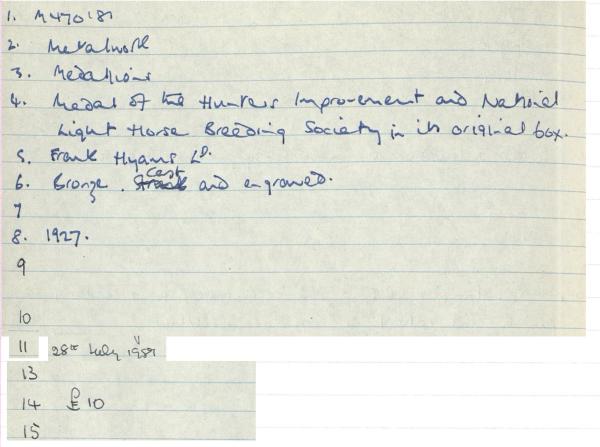 1. M470'87
2. Metalwork
3. Medallions
4. Medal of the Hunters Improvement and National
Light Horse Breeding Society in its original box.
5. Frank Hyams Ld.
6. Bronze. cast and engraved.
7
8. 1927.
9
10
11 28th July
13
14 £10
15